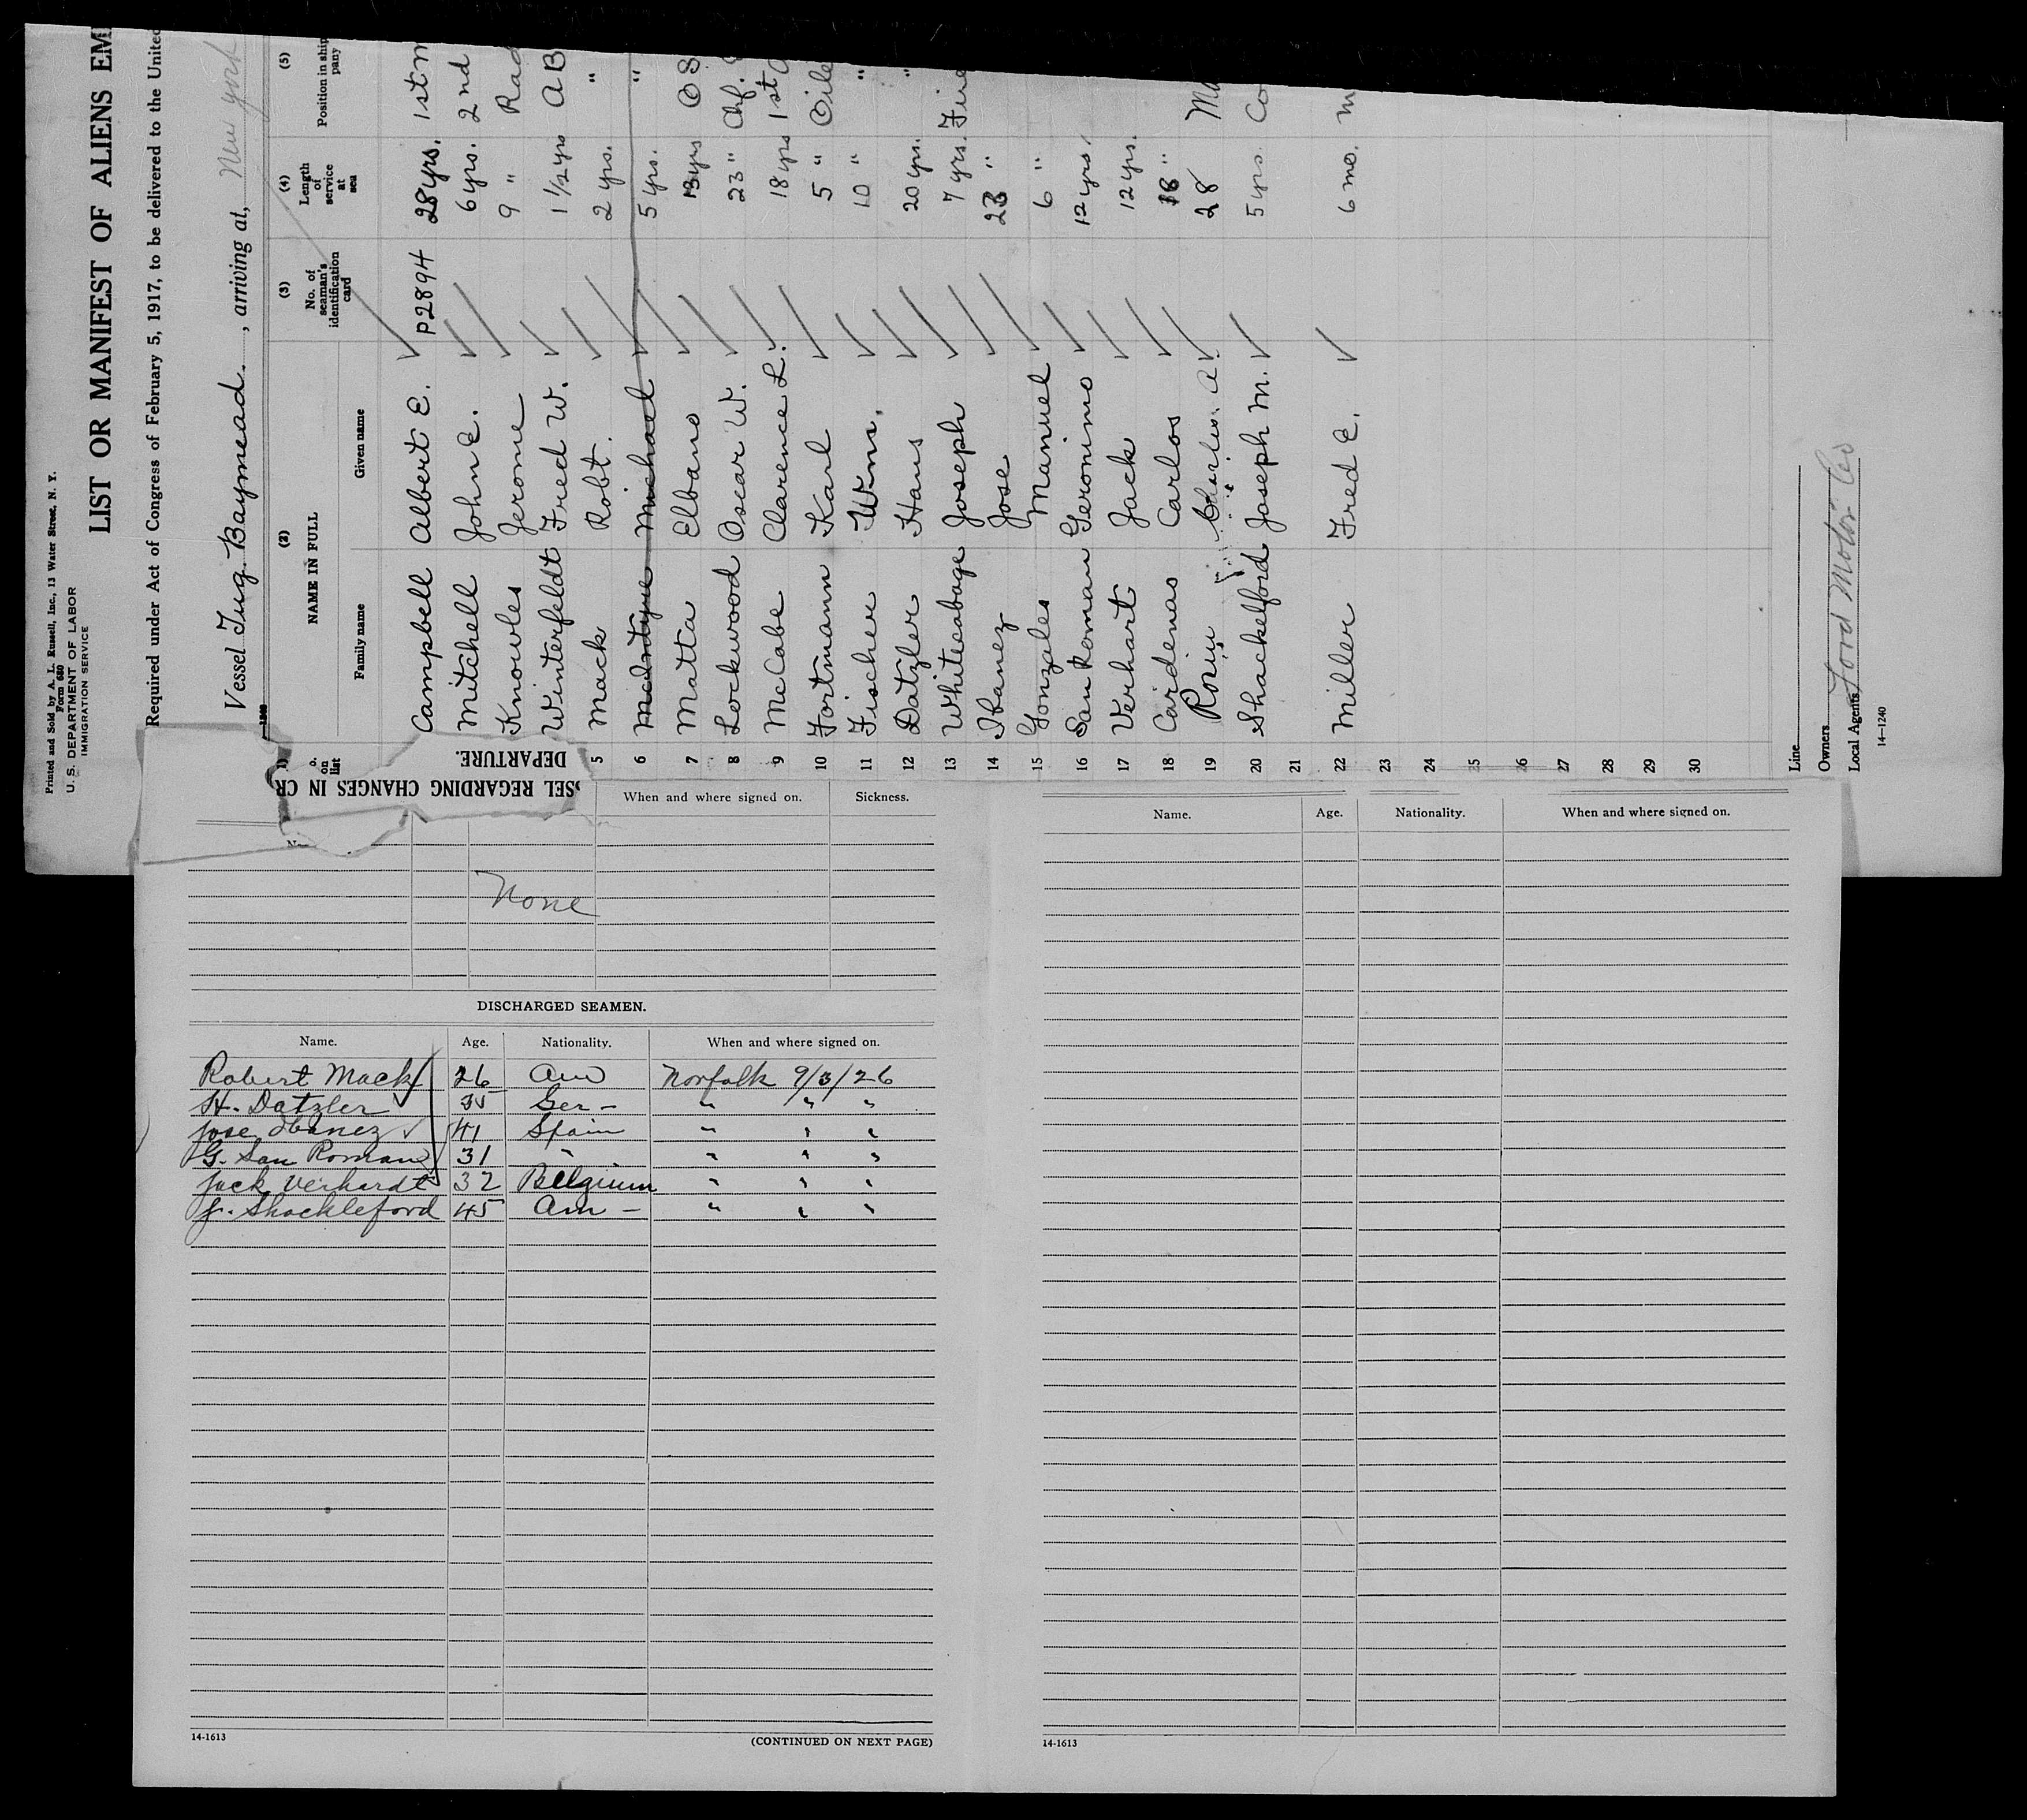 Printed and Sold by A. L. Russell, Inc., 13 Water Street. N. Y.
Form 680
U. S. DEPARTMENT OF LABOR
IMMIGRATION SERVICE
LIST OR MANIFEST OF ALIENS EM
Required under Act of Congress of February 5, 1917, to be delivered to the United
Vessel Tug. Baymead., arriving at, New York
(1) (2) (3) (4) (5)
o. on list NAME IN FULL No. of seaman's identification card Length of service at sea Position in ship pany
Family name Given name
Campbell Albert E. P2894 28 yrs. 1st m
Mitchell John E. 6 yrs. 2nd
Knowles Jerome 9 " Rad
Winterfeldt Fred W. 1 1/2 yrs A B
5 Mack Robt. 2 yrs. "
6 McIntyre Michael 5 yrs. "
7 Matta Elbano 13 yrs O S
8 Lockwood Oscar W. 23 " Chf.
9 McCabe Clarence L. 18 yrs 1st
10 Fortmann Karl 5 " Oile
11 Fischer Wm. 10 " "
12 Datzler Hans 20 yrs. "
13 Whiteabage Joseph 7 yrs. Fire
14 Ibanez Jose 23 "
15 Gonzales Manuel 6 "
16 San Roman Geronimo 12 yrs.
17 Verhart Jack 12 yrs.
18 Cardenas Carlos 18 "
19 Charles A. 28 Ma
20 Shackelford Joseph M. 5 yrs. Co
21
22 Miller Fred E. 6 mo. m
23
24
25
26
27
28
29
30
Line
Owners Ford Motor Co
Local Agents
14—1240
SSEL REGARDING CHANGES IN CR
DEPARTURE.
When and where signed on. Sickness.
None
DISCHARGED SEAMEN.
Name. Age. Nationality. When and where signed on.
Robert Mack 26 Am Norfolk 9/3/26
H. Datzler 35 Ger - " " "
Jose Ibanez 41 Spain " " "
G. San Roman 31 " " " "
Jack Verhardt 32 Belgium " " "
J. Shackleford 45 Am - " " "
14-1613
(CONTINUED ON NEXT PAGE)
Name. Age. Nationality. When and where signed on.
14-1613